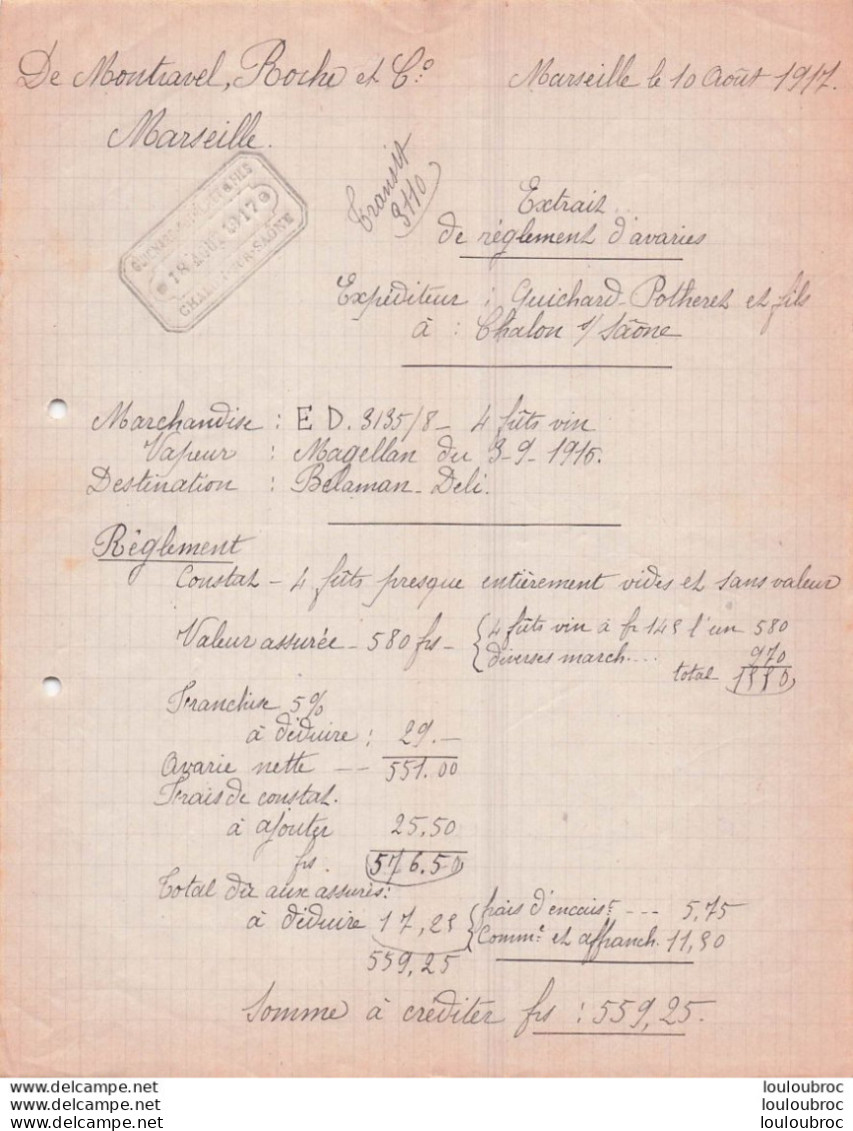 De Montravel, Roche et Cº
Marseille le 10 Août 1917.
Marseille.
Transit
3110
GUICHARD POTHERET & FILS
18 AOUT 1917
CHALON-SUR-SAÔNE
Extrait
de réglement d'avaries
Expéditeur : Guichard-Potheret et fils
à : Chalon s/ Saône
Marchandise : E D. 3135/8 - 4 fûts vin
Vapeur : Magellan du 3-9-1916.
Destination : Belaman-Deli.
Règlement
Constat - 4 fûts presque entièrement vides et sans valeur
Valeur assurée - 580 frs - { 4 fûts vin à fr 145 l'un 580
{ diverses march.... 970
total 1550
Franchise 5%
à déduire : 29.-
Avarie nette -- 551.00
Frais de constat.
à ajouter 25,50
frs. 576.50
Total dû aux assurés :
à déduire 17,25 { frais d'encaist --- 5,75
{ Commn et affranch. 11,50
559,25
Somme à créditer frs : 559,25.
www.delcampe.net louloubroc
www.delcampe.net louloubroc
www.delcampe.net louloubroc